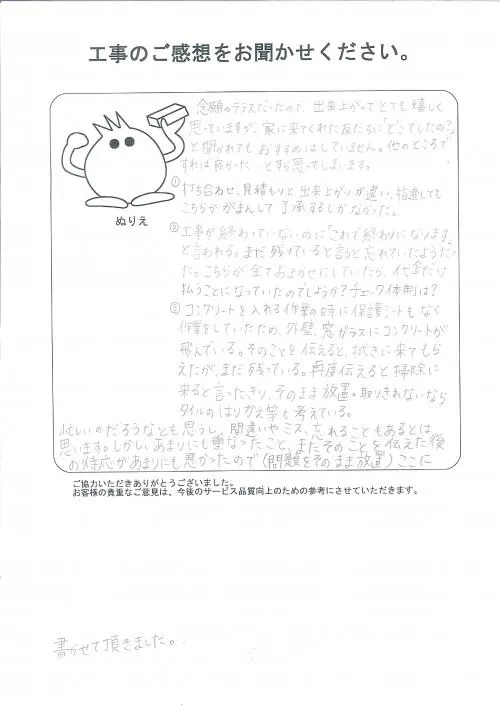 工事のご感想をお聞かせください。
念願のテラスだったので、出来上がってとても嬉しく
思っていますが、家に来てくれた友だちに「どこでしたの?」
と聞かれてもおすすめはしていません。他のところで
すれば良かった…とすら思ってしまいます。
① 打ち合わせ、見積もりと出来上がりが違い、指摘しても
こちらががまんして了承するしかなかった。
② 工事が終わっていないのに「これで終わりになります」
と言われる。まだ残っていると言うと忘れていたようだっ
た。こちらが全ておまかせにしていたら、代金だけ
払うことになっていたのでしょうか?チェック体制は?
③ コンクリートを入れる作業の時に保護シートもなく
作業をしていたため、外壁、窓ガラスにコンクリートが
飛んでいる。そのことを伝えると、拭きに来てもら
えたが、まだ残っている。再度伝えると掃除に
来ると言ったきり、そのまま放置。取りきれないなら
タイルのはりかえ等も考えている。
ぬりえ
忙しいのだろうなとも思うし、間違いやミス、忘れることもあるとは
思います。しかし、あまりにも重なったこと、またそのことを伝えた後
の対応があまりにも悪かったので(問題をそのまま放置)ここに
ご協力いただきありがとうございました。
お客様の貴重なご意見は、今後のサービス品質向上のための参考にさせていただきます。
書かせて頂きました。